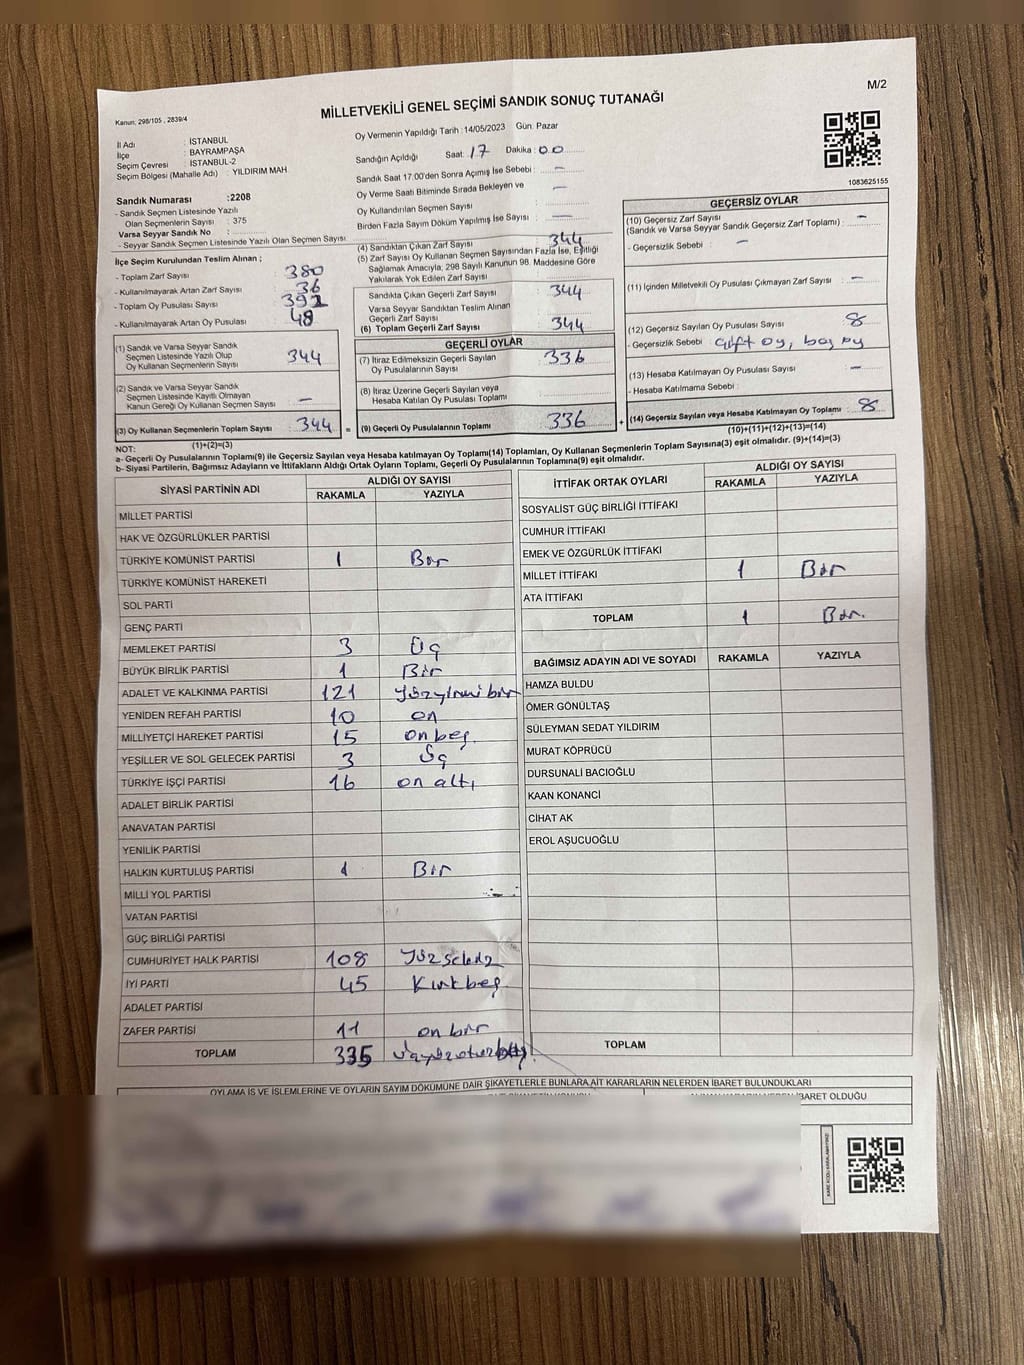 M/2
Kanun: 298/105 , 2839/4
MİLLETVEKİLİ GENEL SEÇİMİ SANDIK SONUÇ TUTANAĞI
İl Adı : İSTANBUL
İlçe : BAYRAMPAŞA
Seçim Çevresi : İSTANBUL-2
Seçim Bölgesi (Mahalle Adı) : YILDIRIM MAH
Sandık Numarası :2208
- Sandık Seçmen Listesinde Yazılı
Olan Seçmenlerin Sayısı : 375
Varsa Seyyar Sandık No :
- Seyyar Sandık Seçmen Listesinde Yazılı Olan Seçmen Sayısı:
İlçe Seçim Kurulundan Teslim Alınan ;
- Toplam Zarf Sayısı : 380
- Kullanılmayarak Artan Zarf Sayısı : 36
- Toplam Oy Pusulası Sayısı : 392
- Kullanılmayarak Artan Oy Pusulası : 48
(1) Sandık ve Varsa Seyyar Sandık
Seçmen Listesinde Yazılı Olup
Oy Kullanan Seçmenlerin Sayısı 344
(2) Sandık ve Varsa Seyyar Sandık
Seçmen Listesinde Kayıtlı Olmayan
Kanun Gereği Oy Kullanan Seçmen Sayısı –
(3) Oy Kullanan Seçmenlerin Toplam Sayısı 344 =
(1)+(2)=(3)
Oy Vermenin Yapıldığı Tarih : 14/05/2023 Gün: Pazar
Sandığın Açıldığı Saat: 17 Dakika : 00
Sandık Saat 17:00'den Sonra Açımış İse Sebebi : –
Oy Verme Saati Bitiminde Sırada Bekleyen ve
Oy Kullandırılan Seçmen Sayısı : –
Birden Fazla Sayım Döküm Yapılmış İse Sayısı : –
(4) Sandıktan Çıkan Zarf Sayısı : 344
(5) Zarf Sayısı Oy Kullanan Seçmen Sayısından Fazla İse, Eşitliği
Sağlamak Amacıyla, 298 Sayılı Kanunun 98. Maddesine Göre
Yakılarak Yok Edilen Zarf Sayısı :
Sandıkta Çıkan Geçerli Zarf Sayısı : 344
Varsa Seyyar Sandıktan Teslim Alınan
Geçerli Zarf Sayısı :
(6) Toplam Geçerli Zarf Sayısı : 344
GEÇERLİ OYLAR
(7) İtiraz Edilmeksizin Geçerli Sayılan
Oy Pusulalarının Sayısı : 336
(8) İtiraz Üzerine Geçerli Sayılan veya
Hesaba Katılan Oy Pusulası Toplamı :
(9) Geçerli Oy Pusulalarının Toplamı : 336 +
1083625155
GEÇERSİZ OYLAR
(10) Geçersiz Zarf Sayısı : –
(Sandık ve Varsa Seyyar Sandık Geçersiz Zarf Toplamı)
- Geçersizlik Sebebi : –
(11) İçinden Milletvekili Oy Pusulası Çıkmayan Zarf Sayısı : –
(12) Geçersiz Sayılan Oy Pusulası Sayısı : 8
- Geçersizlik Sebebi : çift oy, boş oy
(13) Hesaba Katılmayan Oy Pusulası Sayısı : –
- Hesaba Katılmama Sebebi :
(14) Geçersiz Sayılan veya Hesaba Katılmayan Oy Toplamı : 8
(10)+(11)+(12)+(13)=(14)
NOT:
a- Geçerli Oy Pusulalarının Toplamı(9) ile Geçersiz Sayılan veya Hesaba katılmayan Oy Toplamı(14) Toplamları, Oy Kullanan Seçmenlerin Toplam Sayısına(3) eşit olmalıdır. (9)+(14)=(3)
b- Siyasi Partilerin, Bağımsız Adayların ve İttifakların Aldığı Ortak Oyların Toplamı, Geçerli Oy Pusulalarının Toplamına(9) eşit olmalıdır.
SİYASİ PARTİNİN ADI ALDIĞI OY SAYISI
RAKAMLA YAZIYLA
MİLLET PARTİSİ
HAK VE ÖZGÜRLÜKLER PARTİSİ
TÜRKİYE KOMÜNİST PARTİSİ 1 Bir
TÜRKİYE KOMÜNİST HAREKETİ
SOL PARTİ
GENÇ PARTİ
MEMLEKET PARTİSİ 3 Üç
BÜYÜK BİRLİK PARTİSİ 1 Bir
ADALET VE KALKINMA PARTİSİ 121 Yüzyirmi bir
YENİDEN REFAH PARTİSİ 10 on
MİLLİYETÇİ HAREKET PARTİSİ 15 on beş
YEŞİLLER VE SOL GELECEK PARTİSİ 3 Üç
TÜRKİYE İŞÇİ PARTİSİ 16 on altı
ADALET BİRLİK PARTİSİ
ANAVATAN PARTİSİ
YENİLİK PARTİSİ
HALKIN KURTULUŞ PARTİSİ 1 Bir
MİLLİ YOL PARTİSİ
VATAN PARTİSİ
GÜÇ BİRLİĞİ PARTİSİ
CUMHURİYET HALK PARTİSİ 108 Yüzsekiz
İYİ PARTİ 45 Kırkbeş
ADALET PARTİSİ
ZAFER PARTİSİ 11 on bir
TOPLAM 335 Üçyüzotuzbeş
İTTİFAK ORTAK OYLARI ALDIĞI OY SAYISI
RAKAMLA YAZIYLA
SOSYALİST GÜÇ BİRLİĞİ İTTİFAKI
CUMHUR İTTİFAKI
EMEK VE ÖZGÜRLÜK İTTİFAKI
MİLLET İTTİFAKI 1 Bir
ATA İTTİFAKI
TOPLAM 1 Bir.
BAĞIMSIZ ADAYIN ADI VE SOYADI RAKAMLA YAZIYLA
HAMZA BULDU
ÖMER GÖNÜLTAŞ
SÜLEYMAN SEDAT YILDIRIM
MURAT KÖPRÜCÜ
DURSUNALİ BACIOĞLU
KAAN KONANCİ
CİHAT AK
EROL AŞUCUOĞLU
TOPLAM
OYLAMA İŞ VE İŞLEMLERİNE VE OYLARIN SAYIM DÖKÜMÜNE DAİR ŞİKAYETLERLE BUNLARA AİT KARARLARIN NELERDEN İBARET BULUNDUKLARI
İBARET OLDUĞU